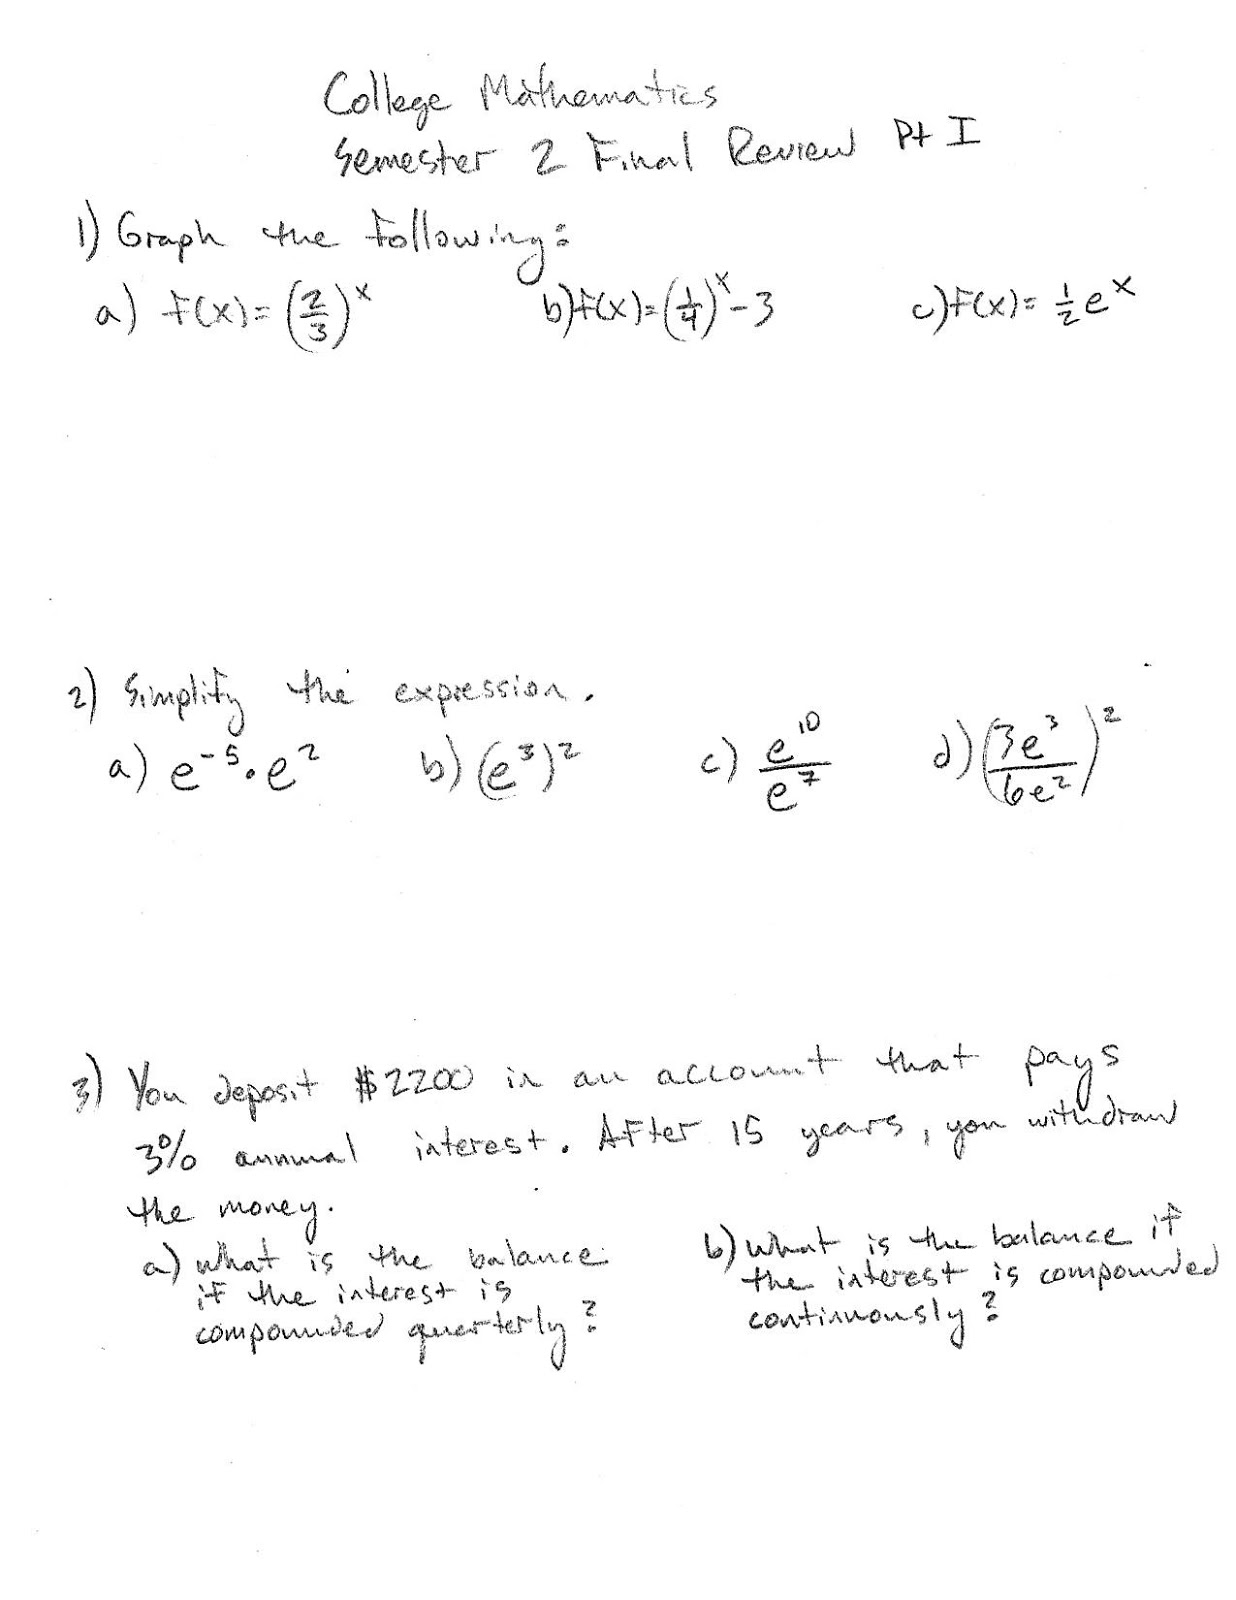 College Mathematics
Semester 2 Final Review Pt I
1) Graph the following:
a) f(x) = (2/3)^x b) f(x) = (1/4)^x - 3 c) f(x) = 1/2 e^x
2) Simplify the expression.
a) e^-5 · e^2 b) (e^3)^2 c) e^10/e^7 d) (3e^3/6e^2)^2
3) You deposit $2200 in an account that pays
3% annual interest. After 15 years, you withdraw
the money.
a) what is the balance
if the interest is
compounded quarterly?
b) what is the balance if
the interest is compounded
continuously?